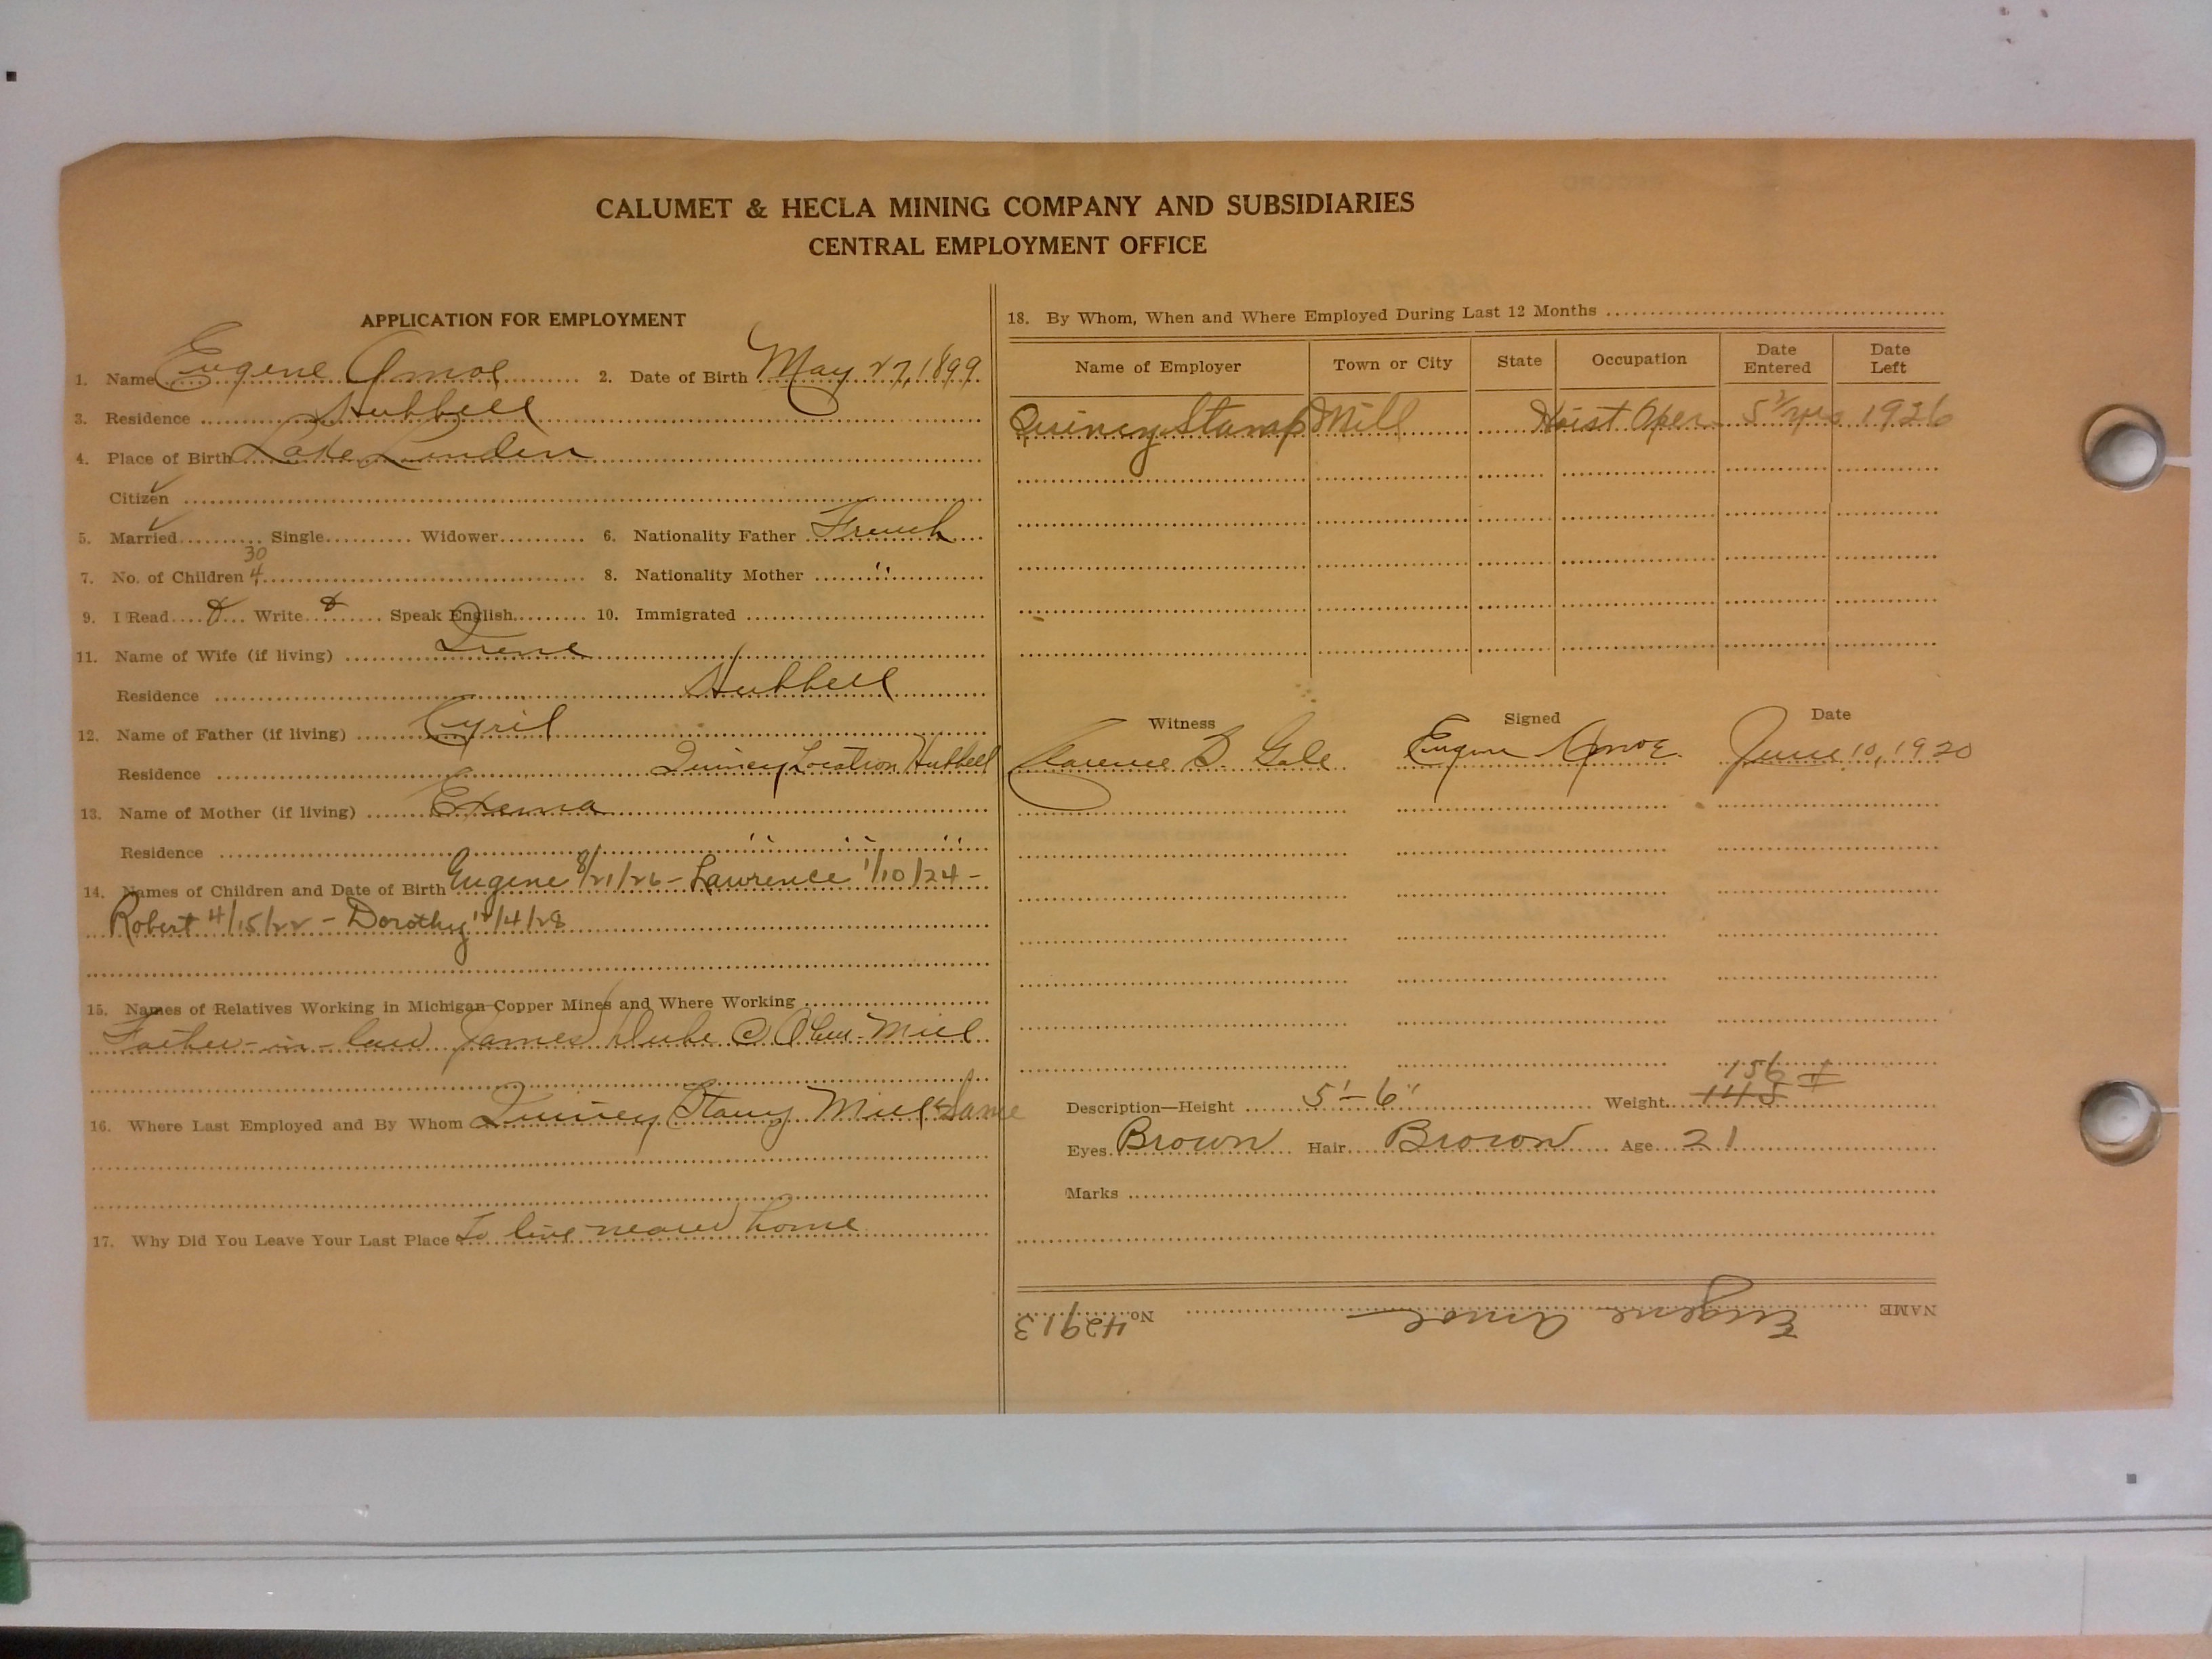 CALUMET & HECLA MINING COMPANY AND SUBSIDIARIES
CENTRAL EMPLOYMENT OFFICE
APPLICATION FOR EMPLOYMENT
1. Name Eugene Amoe 2. Date of Birth May 27, 1899
3. Residence Hubbell
4. Place of Birth Lake Linden
Citizen ✓
5. Married ✓ Single Widower 6. Nationality Father French
30
7. No. of Children 4 8. Nationality Mother "
9. I Read Write Speak English 10. Immigrated
11. Name of Wife (if living) Irene
Residence Hubbell
12. Name of Father (if living) Cyril
Residence Quincy Location Hubbell
13. Name of Mother (if living) Exema
Residence " " "
14. Names of Children and Date of Birth Eugene 8/21/26 - Lawrence 1/10/24 -
Robert 4/15/22 - Dorothy 12/4/28
15. Names of Relatives Working in Michigan Copper Mines and Where Working
Father-in-law James Dube Mill
16. Where Last Employed and By Whom Quincy Stamp Mill Same
17. Why Did You Leave Your Last Place To live nearer home
18. By Whom, When and Where Employed During Last 12 Months
Name of Employer Town or City State Occupation Date Entered Date Left
Quincy Stamp Mill Hoist Oper 5 1/2 yrs 1926
Witness Signed Date
Clarence S. Gale Eugene Amoe June 10, 1920
156 #
Description—Height 5'-6" Weight 145
Eyes Brown Hair Brown Age 21
Marks
NAME Eugene Amoe No. 42913